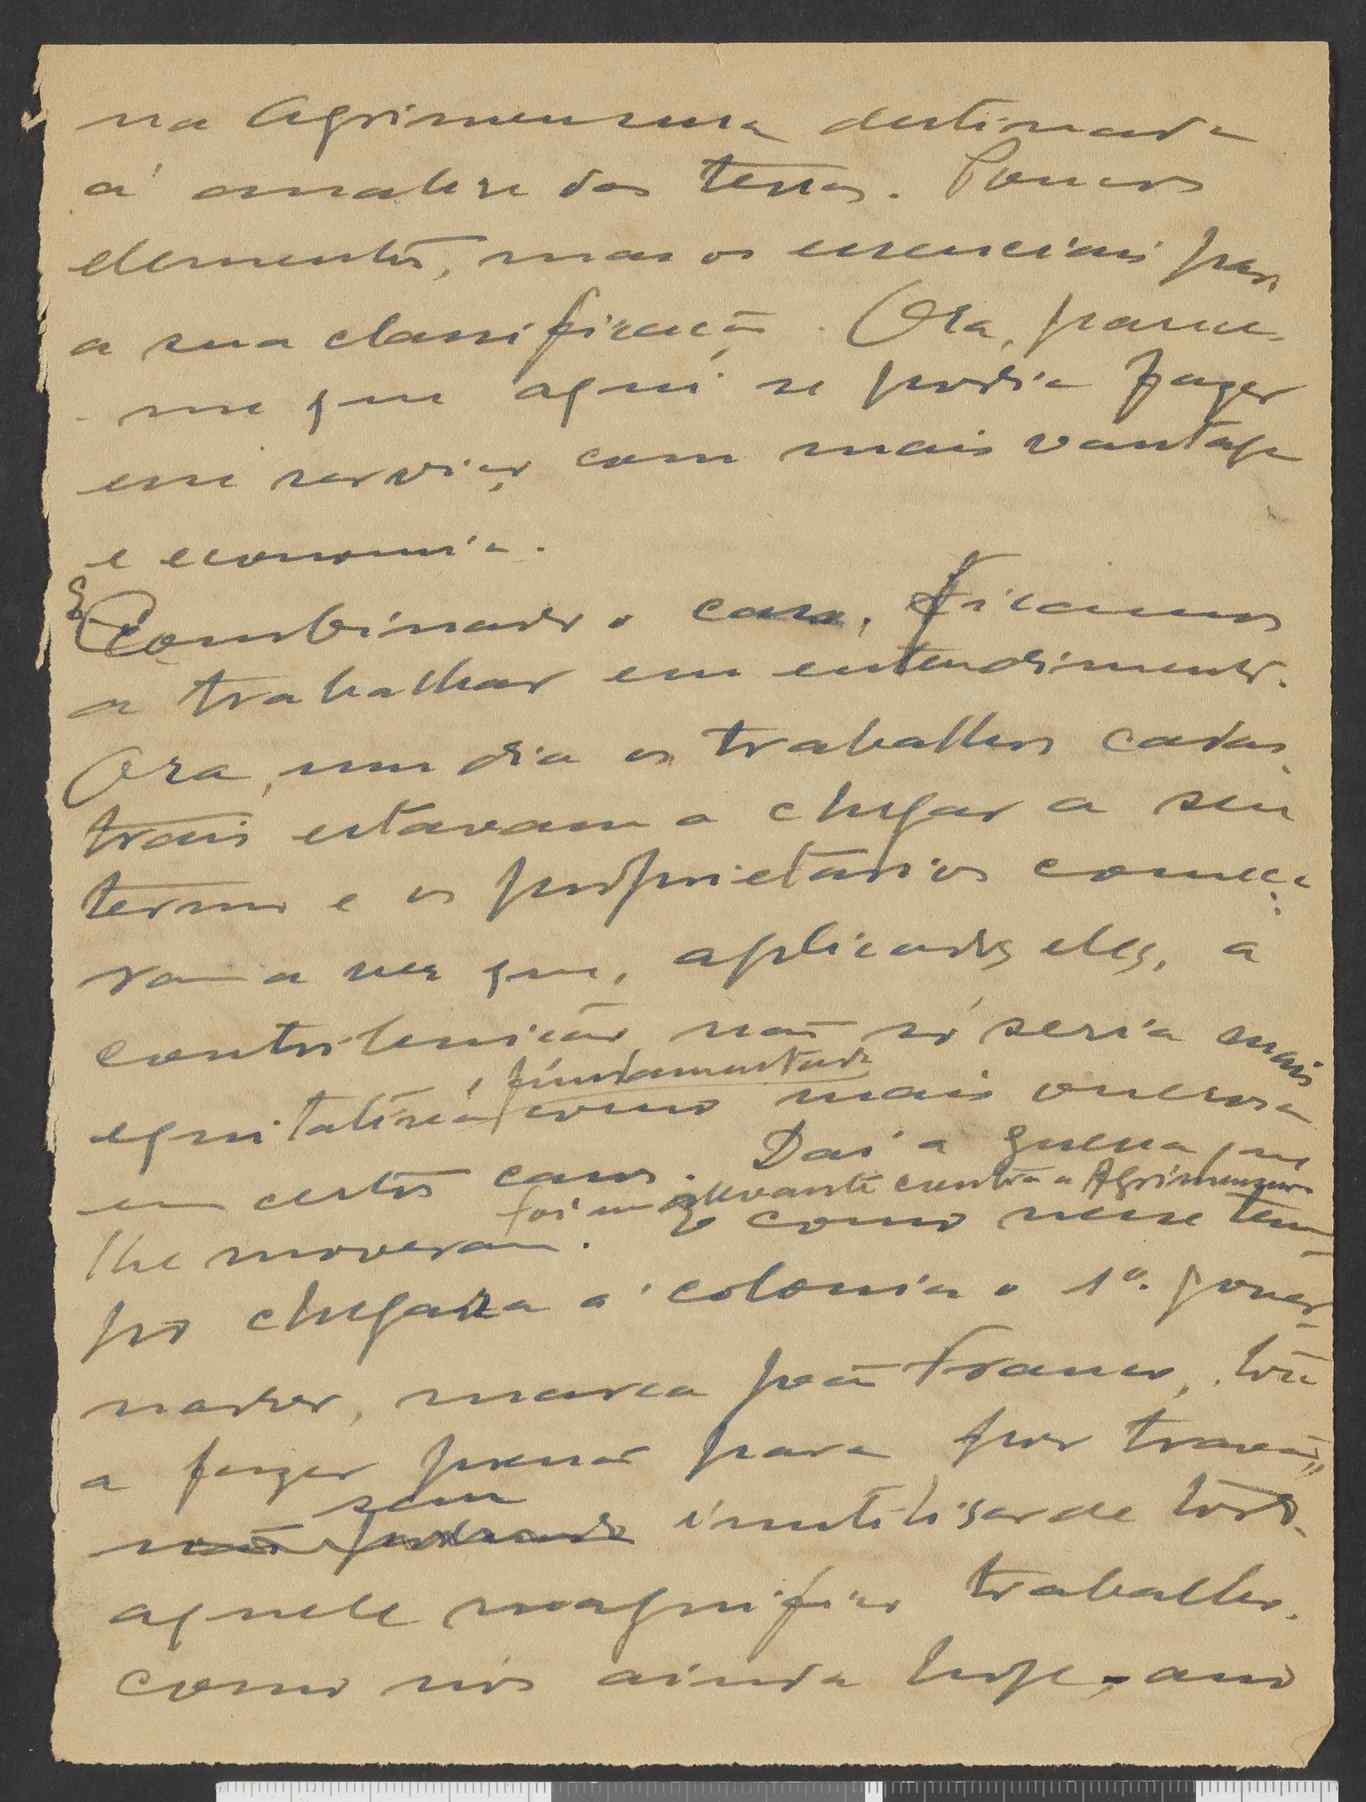 na Agrimensura destinada
á analise das terras. Poucos
elementos, mas os essenciais para
a sua classificação. Ora, parece-
-me que aqui se podia fazer
esse serviço com mais vantagem
e economia.
E Combinado o caso, ficamos
a trabalhar em entendimento.
Ora, um dia os trabalhos cadas-
trais estavam a chegar a seu
termo e os proprietarios começa-
ram a ver que, aplicados eles, a
contribuição não só seria mais
equitativa, fundamentada como mais onerosa
em certos casos. Daí a guerra que
lhe moveram. foi um levante contra a Agrimensura
E como nesse tem-
po chegara á colonia o 1º. gover-
nador, marca João Franco,
a fazer pressão para pôr travão,
não podendo sem inutilisar de todo
aquele magnifico trabalho.
como nós ainda hoje, ano